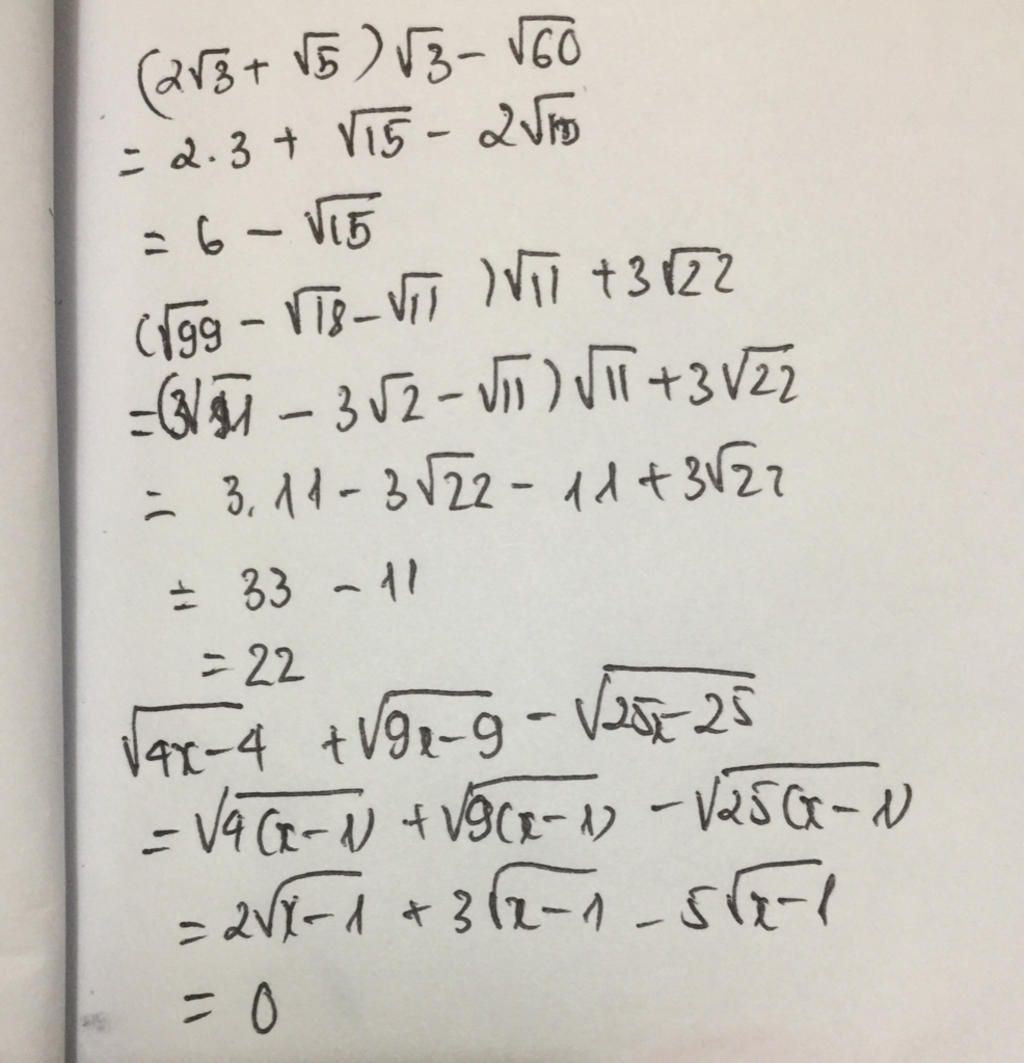 (2√3 + √5)√3 - √60
= 2.3 + √15 - 2√15
= 6 - √15
(√99 - √18 - √11)√11 + 3√22
= (3√11 - 3√2 - √11)√11 + 3√22
= 3.11 - 3√22 - 11 + 3√22
= 33 - 11
= 22
√4x-4 + √9x-9 - √25x-25
= √4(x-1) + √9(x-1) - √25(x-1)
= 2√x-1 + 3√x-1 - 5√x-1
= 0